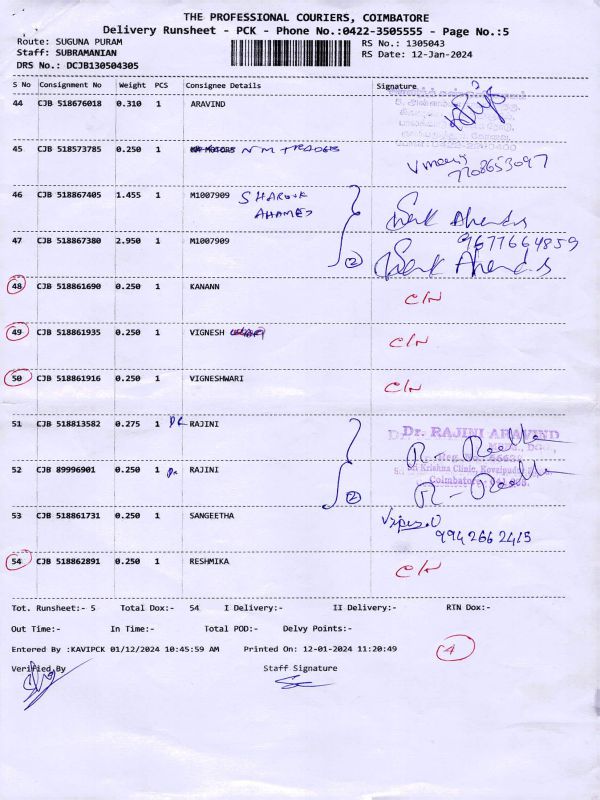 THE PROFESSIONAL COURIERS, COIMBATORE
Delivery Runsheet - PCK - Phone No.:0422-3505555 - Page No.:5
Route: SUGUNA PURAM
RS No.: 1305043
Staff: SUBRAMANIAN
RS Date: 12-Jan-2024
DRS No.: DCJB130504305
S No Consignment No Weight PCS Consignee Details Signature
44 CJB 518676018 0.310 1 ARAVIND
45 CJB 518573785 0.250 1 NM TRADERS
7708653097
46 CJB 518867405 1.455 1 M1007909 SHAROOK
AHAMED
9677664859
47 CJB 518867380 2.950 1 M1007909 2
48 CJB 518861690 0.250 1 KANANN C/N
49 CJB 518861935 0.250 1 VIGNESH C/N
50 CJB 518861916 0.250 1 VIGNESHWARI C/N
51 CJB 518813582 0.275 1 Dr RAJINI
Dr. RAJINI ARAVIND
52 CJB 89996901 0.250 1 Dr RAJINI 2
Sri Krishna Clinic,
Coimbatore
53 CJB 518861731 0.250 1 SANGEETHA
9942662415
54 CJB 518862891 0.250 1 RESHMIKA C/N
Tot. Runsheet:- 5 Total Dox:- 54 I Delivery:- II Delivery:- RTN Dox:-
Out Time:- In Time:- Total POD:- Delvy Points:-
Entered By :KAVIPCK 01/12/2024 10:45:59 AM Printed On: 12-01-2024 11:20:49 4
Verified By Staff Signature